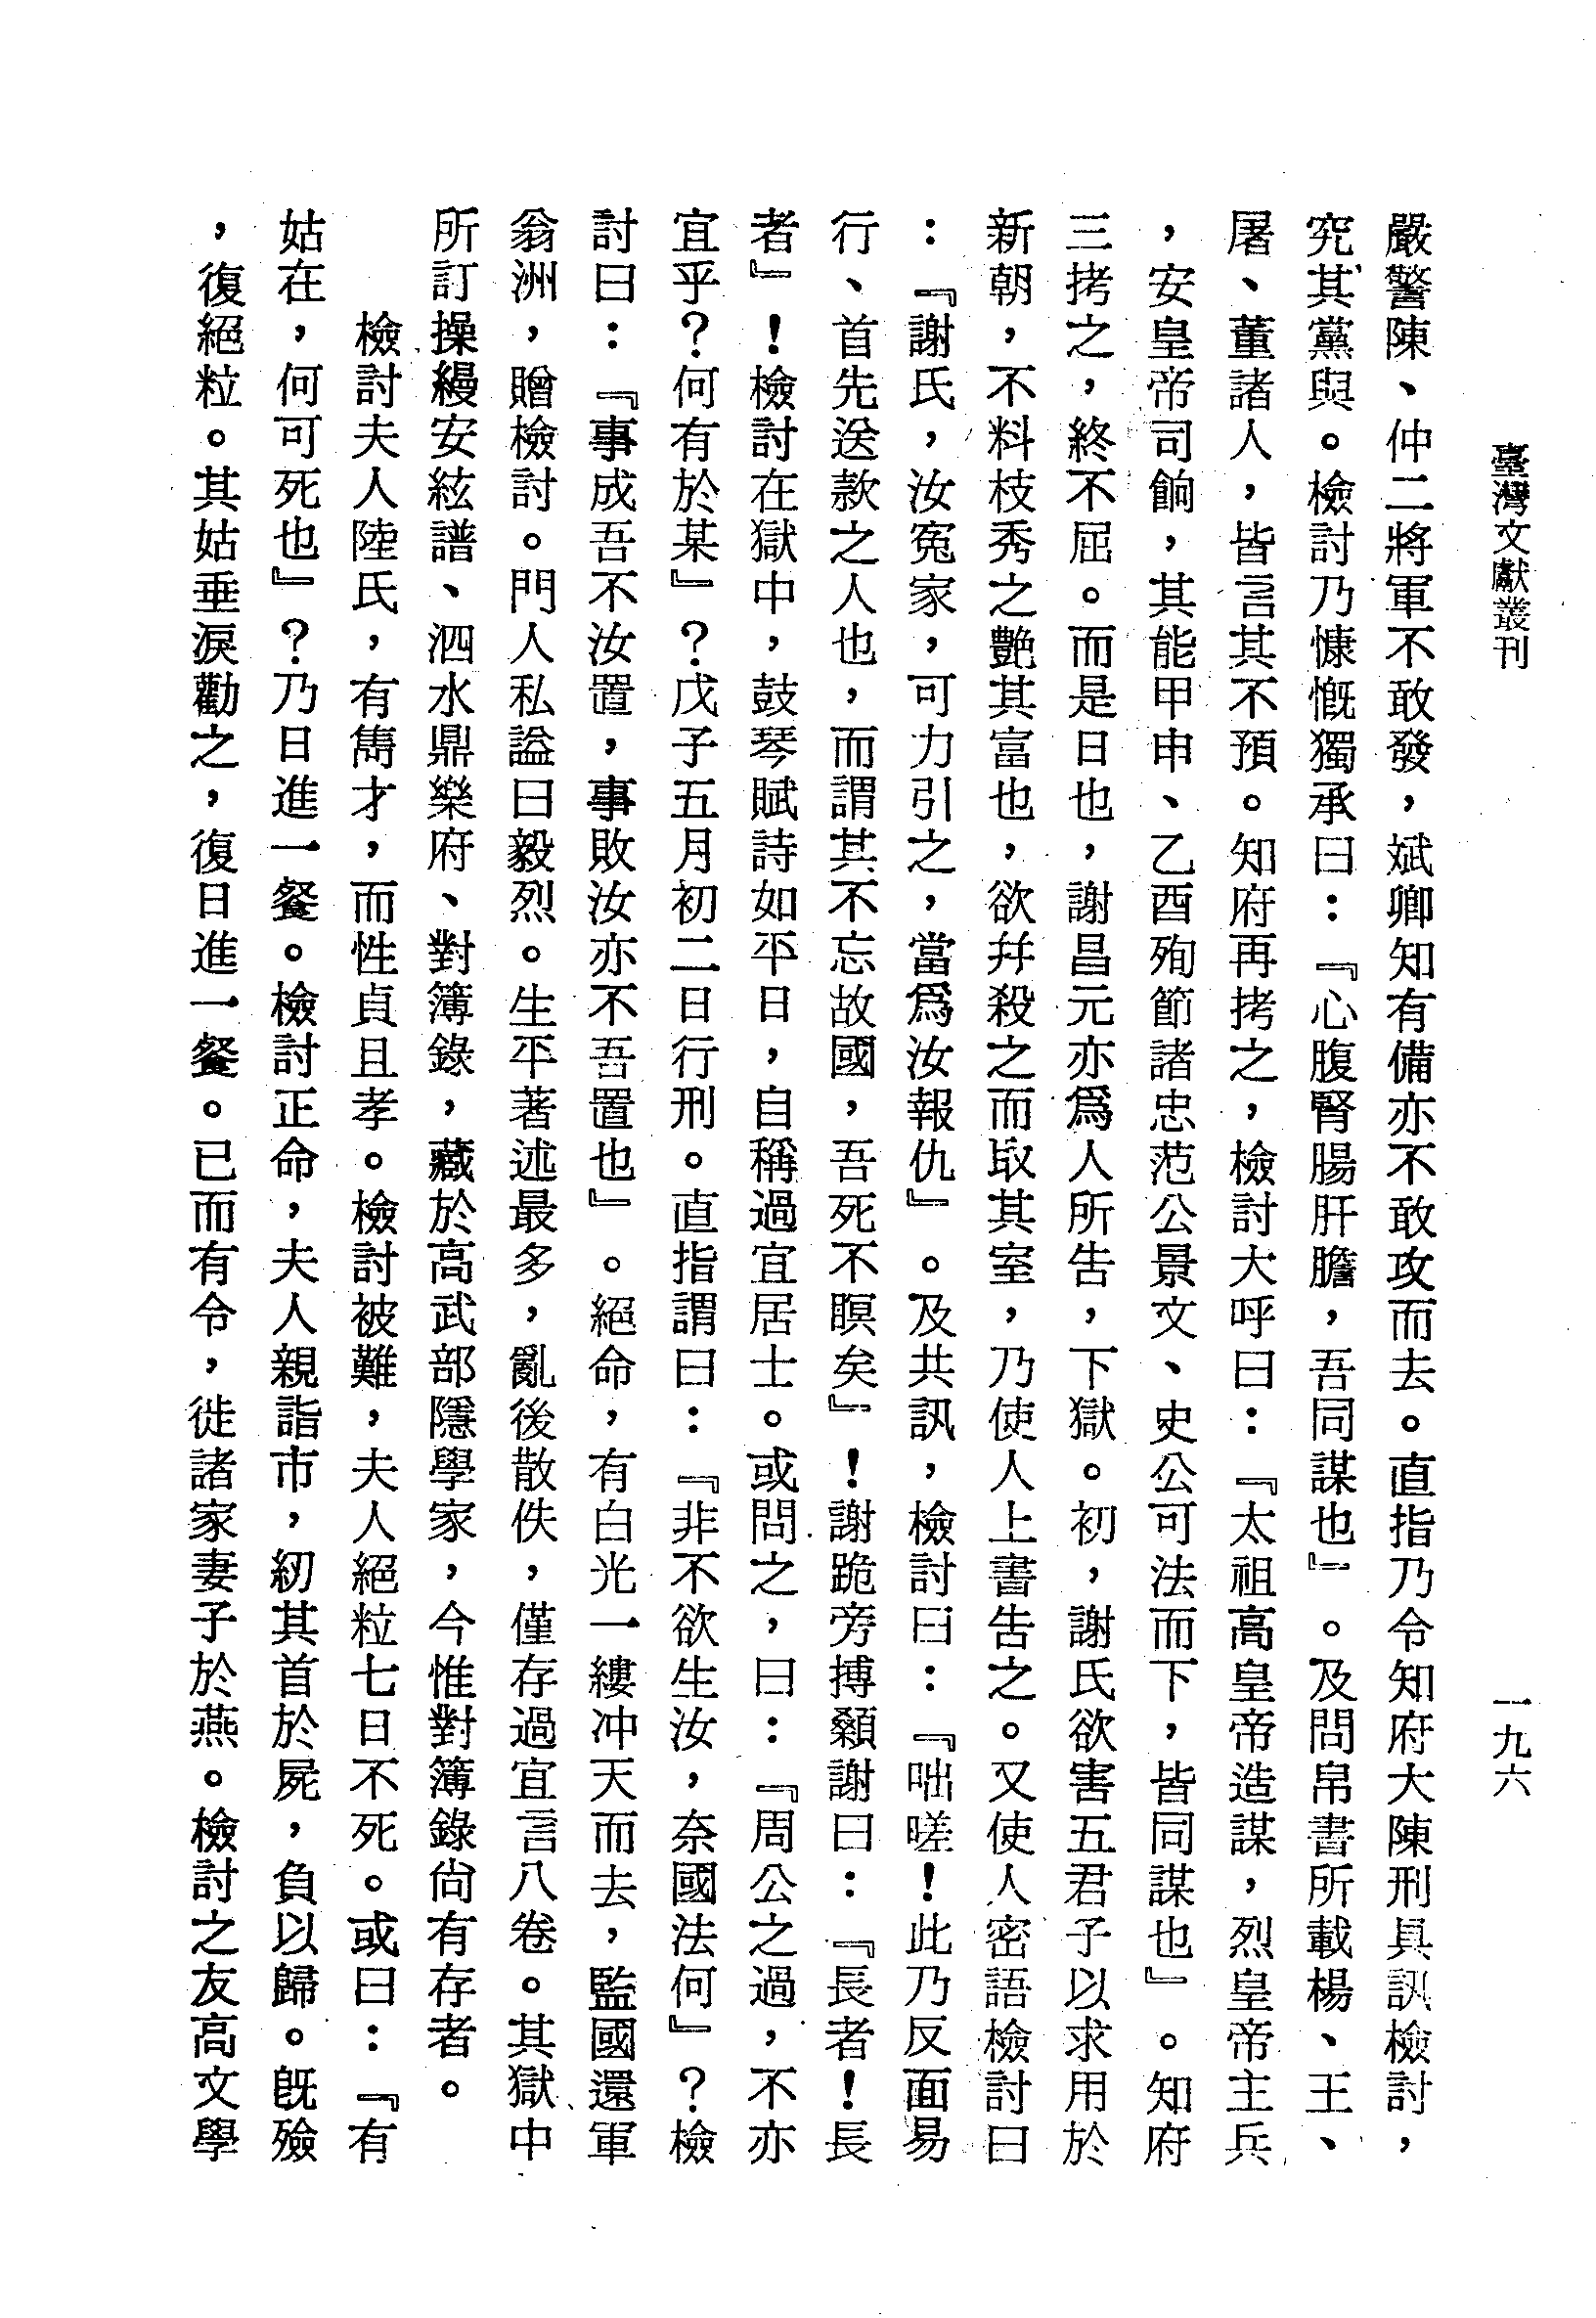 臺灣文獻叢刊
一九六
嚴警陳、仲二將軍不敢發，斌卿知有備亦不敢攻而去。直指乃令知府大陳刑具訊檢討，
究其黨與。檢討乃慷慨獨承曰：『心腹腎腸肝膽，吾同謀也』。及問帛書所載楊、王、
屠、董諸人，皆言其不預。知府再拷之，檢討大呼曰：『太祖高皇帝造謀，烈皇帝主兵
，安皇帝司餉，其能甲申、乙酉殉節諸忠范公景文、史公可法而下，皆同謀也』。知府
三拷之，終不屈。而是日也，謝昌元亦爲人所告，下獄。初，謝氏欲害五君子以求用於
新朝，不料枝秀之艷其富也，欲幷殺之而取其室，乃使人上書告之。又使人密語檢討曰
：『謝氏，汝寃家，可力引之，當爲汝報仇』。及共訊，檢討曰：『咄嗟！此乃反面易
行、首先送款之人也，而謂其不忘故國，吾死不瞑矣』！謝跪旁搏顙謝曰：『長者！長
者』！檢討在獄中，鼓琴賦詩如平日，自稱過宜居士。或問之，曰：『周公之過，不亦
宜乎？何有於某』？戊子五月初二日行刑。直指謂曰：『非不欲生汝，奈國法何』？檢
討曰：『事成吾不汝置，事敗汝亦不吾置也』。絕命，有白光一縷冲天而去，監國還軍
翁洲，贈檢討。門人私謚曰毅烈。生平著述最多，亂後散佚，僅存過宜言八卷。其獄中
所訂操縵安絃譜、泗水鼎樂府、對簿錄，藏於高武部隱學家，今惟對簿錄尙有存者。
檢討夫人陸氏，有雋才，而性貞且孝。檢討被難，夫人絕粒七日不死。或曰：『有
姑在，何可死也』？乃日進一餐。檢討正命，夫人親詣市，紉其首於屍，負以歸。旣殮
，復絕粒。其姑垂淚勸之，復日進一餐。已而有令，徙諸家妻子於燕。檢討之友高文學